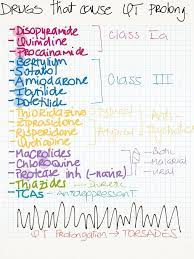 DRUGS THAT CAUSE QT PROLONG
Disopyramide
Quinidine
Procainamide
Class Ia
Bertylium
Sotalol
Amiodarone
Ibutilide
Dofetilide
Class III
Thioridazine
Ziprasidone
Risperidone
Anti
Macrolides
Chloroquine
Protease inh (-navir)
Thiazide
TCAs → Antidepressant
QT Prolongation → TORSADES